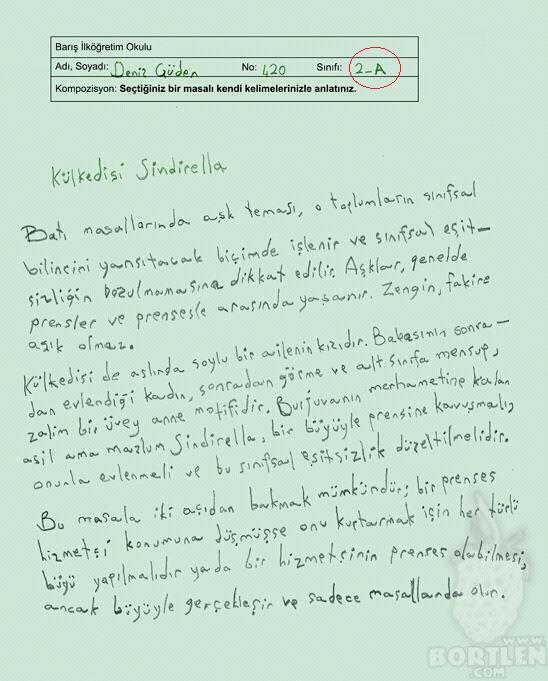 Barış İlköğretim Okulu
Adı, Soyadı: Deniz Güden No: 420 Sınıfı: 2-A
Kompozisyon: Seçtiğiniz bir masalı kendi kelimelerinizle anlatınız.
Külkedisi Sindirella
Batı masallarında aşk teması, o toplumların sınıfsal
bilincini yansıtacak biçimde işlenir ve sınıfsal eşit-
sizliğin bozulmamasına dikkat edilir. Aşklar, genelde
prensler ve prensesle arasında yaşanır. Zengin, fakire
aşık olmaz.
Külkedisi de aslında soylu bir ailenin kızıdır. Babasının sonra-
dan evlendiği kadın, sonradan görme ve alt sınıfa mensup,
zalim bir üvey anne motifidir. Burjuvanın merhametine kalan
asil ama mazlum Sindirella, bir büyüyle prensine kavuşmalı,
onunla evlenmeli ve bu sınıfsal eşitsizlik düzeltilmelidir.
Bu masala iki açıdan bakmak mümkündür; bir prenses
hizmetçi konumuna düşmüşse onu kurtarmak için her türlü
büyü yapılmalıdır ya da bir hizmetçinin prenses olabilmesi,
ancak büyüyle gerçekleşir ve sadece masallarda olur.
WWW.
BORTLEN
.COM